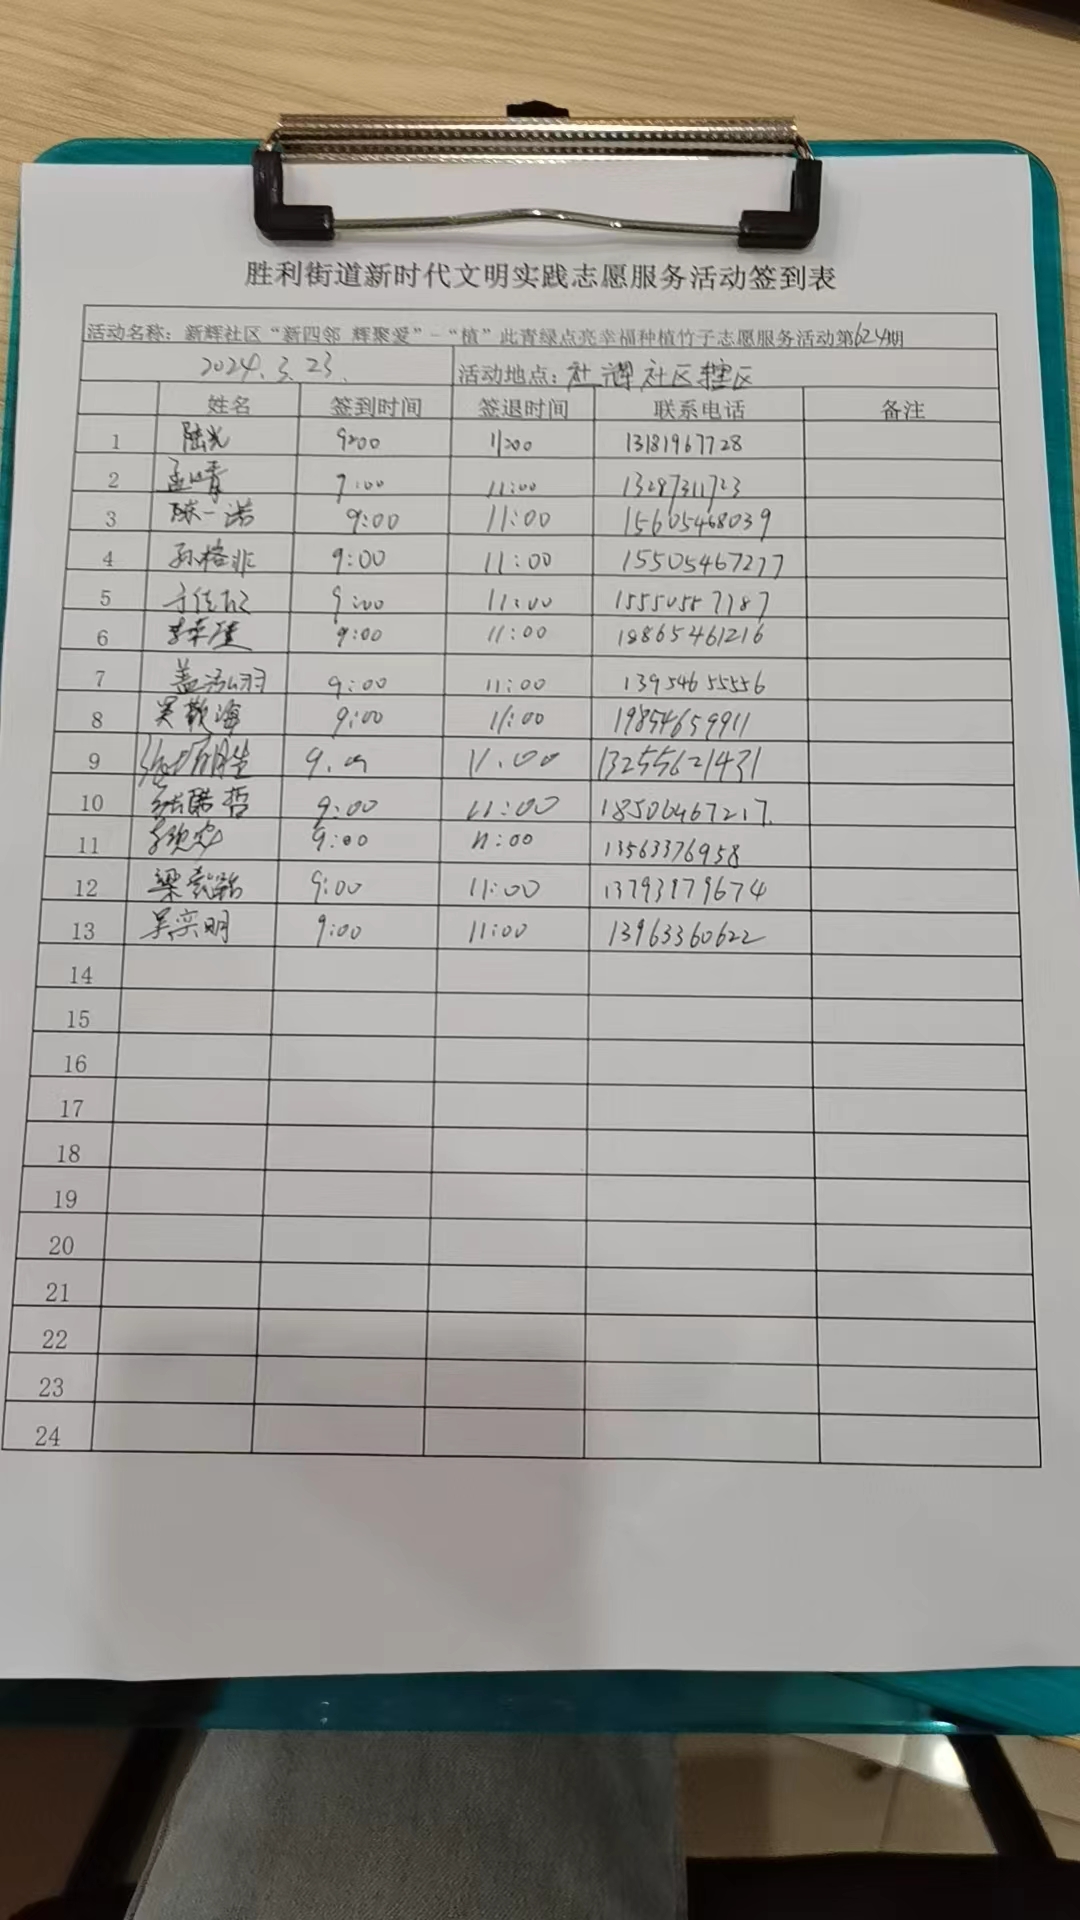 胜利街道新时代文明实践志愿服务活动签到表
活动名称：新辉社区“新四邻 辉聚爱”-“植”此青绿点亮幸福种植竹子志愿服务活动第624期
2024.3.23. 活动地点：社区辖区
姓名 签到时间 签退时间 联系电话 备注
1 陆光 9:00 11:00 13181967728
2 孟晴 9:00 11:00 13287311723
3 陈一诺 9:00 11:00 15605468039
4 孙格非 9:00 11:00 15505467277
5 9:00 11:00 15550557187
6 9:00 11:00 18865461216
7 盖泓羽 9:00 11:00 13954655556
8 吴敬海 9:00 11:00 19854659911
9 11:00 13255621431
10 9:00 11:00 18506467217.
11 9:00 11:00 13563376958
12 9:00 11:00 13793179674
13 吴奕明 9:00 11:00 13963360622
14
15
16
17
18
19
20
21
22
23
24